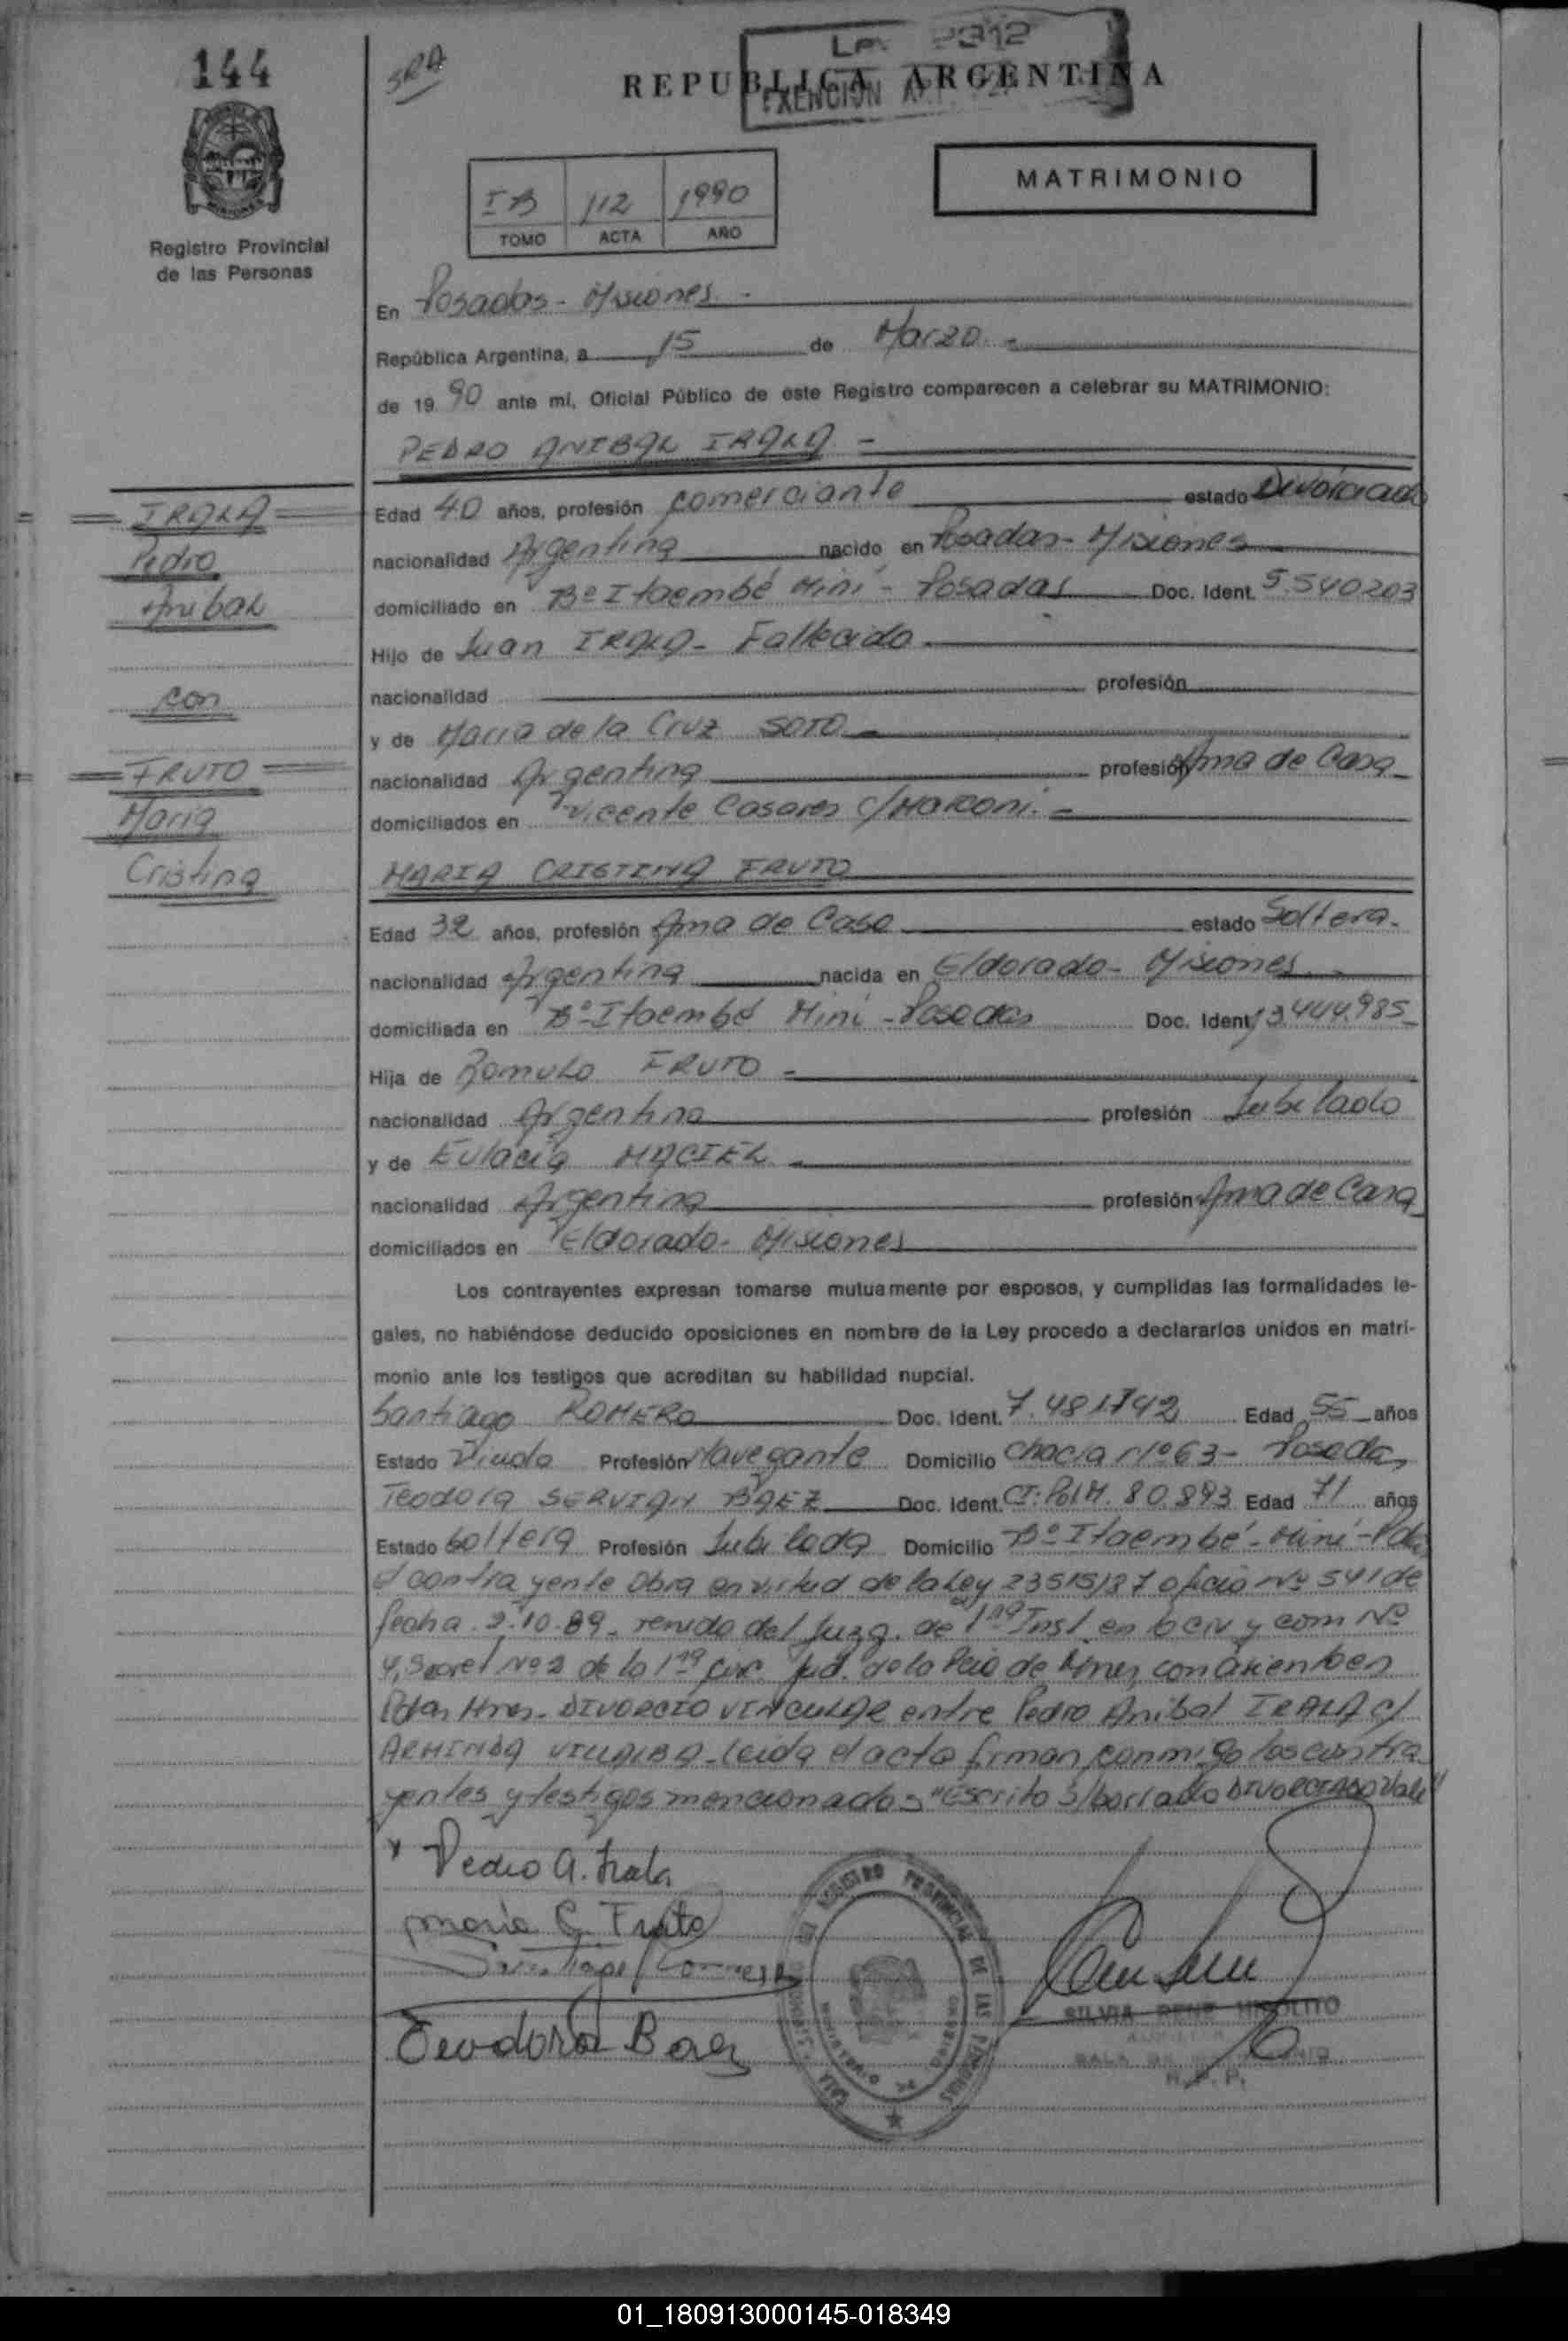 144
SRA
Ley 2312
EXENCION
REPUBLICA ARGENTINA
MATRIMONIO
I B 112 1990
TOMO ACTA AÑO
Registro Provincial
de las Personas
En Posadas - Misiones -
República Argentina, a 15 de Marzo -
de 19 90 ante mí, Oficial Público de este Registro comparecen a celebrar su MATRIMONIO:
PEDRO ANIBAL IRALA -
IRALA
Pedro
Anibal
con
FRUTO
Maria
Cristina
Edad 40 años, profesión comerciante estado Divorciado
nacionalidad Argentina nacido en Posadas - Misiones
domiciliado en Bº Itaembé Miní - Posadas Doc. Ident. 5.540203
Hijo de Juan IRALA - Fallecido
nacionalidad profesión
y de Maria de la Cruz SOTO
nacionalidad Argentina profesión Ama de Casa
domiciliados en Vicente Casares c/ MARCONI. -
MARIA CRISTINA FRUTO
Edad 32 años, profesión Ama de Casa estado Soltera -
nacionalidad Argentina nacida en Eldorado - Misiones
domiciliada en Bº Itaembé Miní - Posadas Doc. Ident. 13.444.985
Hija de Romulo FRUTO -
nacionalidad Argentina profesión Jubilado
y de Eulacia MACIEL
nacionalidad Argentina profesión Ama de Casa
domiciliados en Eldorado - Misiones
Los contrayentes expresan tomarse mutuamente por esposos, y cumplidas las formalidades le-
gales, no habiéndose deducido oposiciones en nombre de la Ley procedo a declararlos unidos en matri-
monio ante los testigos que acreditan su habilidad nupcial.
Santiago ROMERO Doc. Ident. 7.481742 Edad 55 años
Estado Viudo Profesión Navegante Domicilio Chacra Nº 63 - Posadas
Teodora SERVIAN BAEZ Doc. Ident. CI: Pol M. 80.893 Edad 71 años
Estado Soltera Profesión Jubilada Domicilio Bº Itaembé - Miní - Pdas
el contrayente obra en virtud de la Ley 23515/87 oficio Nº 541 de
fecha 2.10.89. remido del Juzg. de 1ra Inst. en lo civ y com Nº
4, Secret Nº 2 de la 1ra circ. Jud. de la Pcia de Mnes, con asiento en
Pdas Mnes. DIVORCIO VINCULAR entre Pedro Anibal IRALA c/
ARMINDA VILLALBA. Leida el acta firman conmigo los contra-
yentes y testigos mencionados "Escrito s/borrado DIVORCIADO Vale"
Pedro A. Irala
Maria C. Fruto
Santiago Romero
Teodora Baez
REGISTRO PROVINCIAL DE LAS PERSONAS
SILVIA RENE HIPOLITO
R. P. P.
01_180913000145-018349